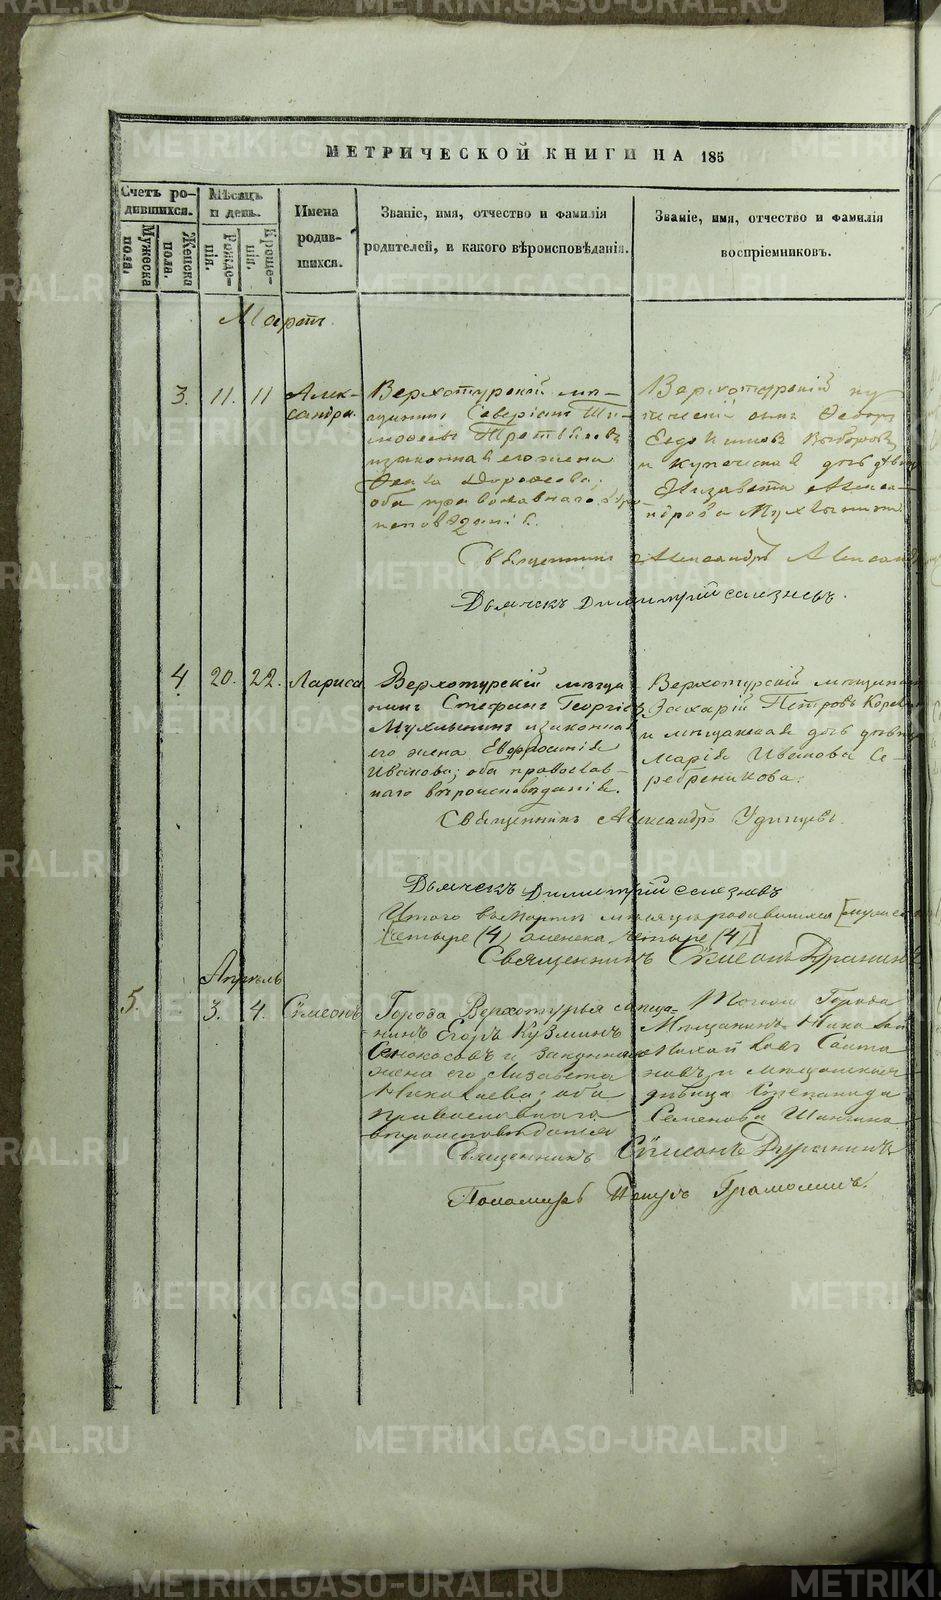 МЕТРИЧЕСКОЙ КНИГИ НА 185
Счетъ ро-
дившихся.
Мужеска пола.
Женска пола.
Мѣсяцъ
и день.
Рожде-
нія.
Креще-
нія.
Имена
родив-
шихся.
Званіе, имя, отчество и фамилія
родителей, и какого вѣроисповѣданія.
Званіе, имя, отчество и фамилія
воспріемниковъ.
Мартъ
3. 11. 11
Алек-
сандра.
Верхотурскій мѣ-
щанинъ Северіанъ Ти-
мофеевъ
и законная его жена
Дорофеева;
оба православнаго вѣро-
исповѣданія.
Верхотурскій ку-
печескій сынъ Федоръ
Евдокимовъ
и купеческая дочь дѣвица
Елизавета Алекса-
ндрова Мухлынина.
Священникъ Александръ
Дьячекъ Димитрій Селезневъ.
4 20. 22. Лариса
Верхотурскій мѣща-
нинъ Стефанъ Георгіевъ
Мухлынинъ и законная
его жена Евфросинія
Иванова; оба православ-
наго вѣроисповѣданія.
Верхотурскій мѣщанинъ
Захарій Петровъ
и мѣщанская дочь дѣвица
Марія Иванова Се-
ребреникова.
Священникъ Александръ Удинцевъ.
Дьячекъ Димитрій Селезневъ
Итого въ Мартѣ мѣсяцѣ родившихся
четыре (4) женска четыре (4)
Священникъ Сѵмеонъ
Апрѣль
5. 3. 4. Сѵмеонъ
Города Верхотурья мѣща-
нинъ Егоръ Кузминъ
Сенокосовъ и законная
жена его Лизавета
Николаева; оба
православнаго
вѣроисповѣданія
Тогоже Города
Мѣщанинъ Николай
Михайловъ
и мѣщанская
дѣвица Степанида
Семенова
Священникъ Сѵмеонъ
Пономарь Петръ Грамолинъ.
METRIKI.GASO-URAL.RU